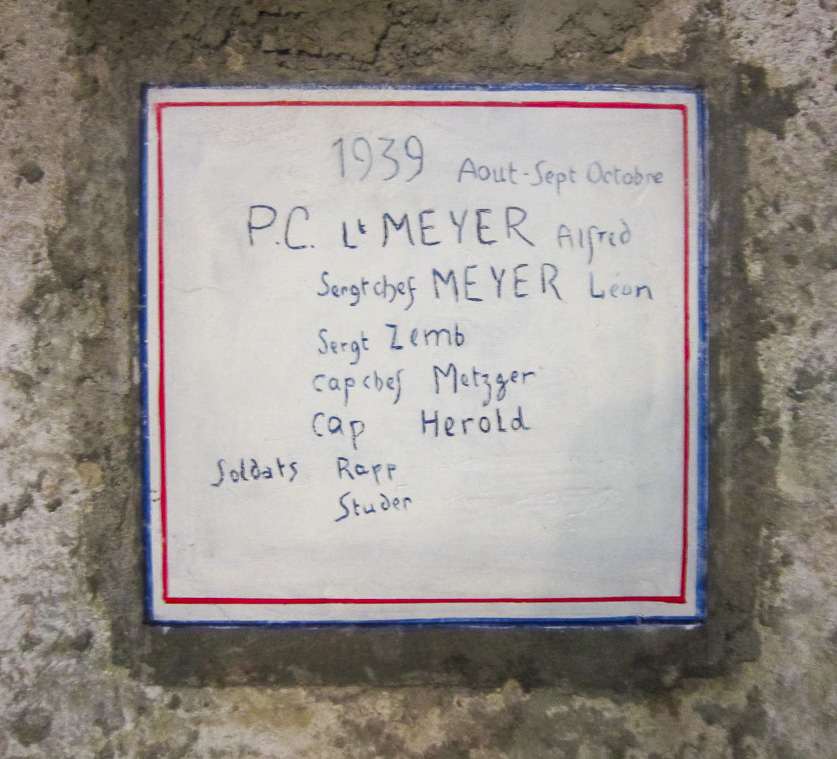 1939 Aout-Sept Octobre
P.C. Lt MEYER Alfred
Sergtchef MEYER Léon
Sergt Zemb
cap chef Metzger
Cap Herold
Soldats Rapp
Studer